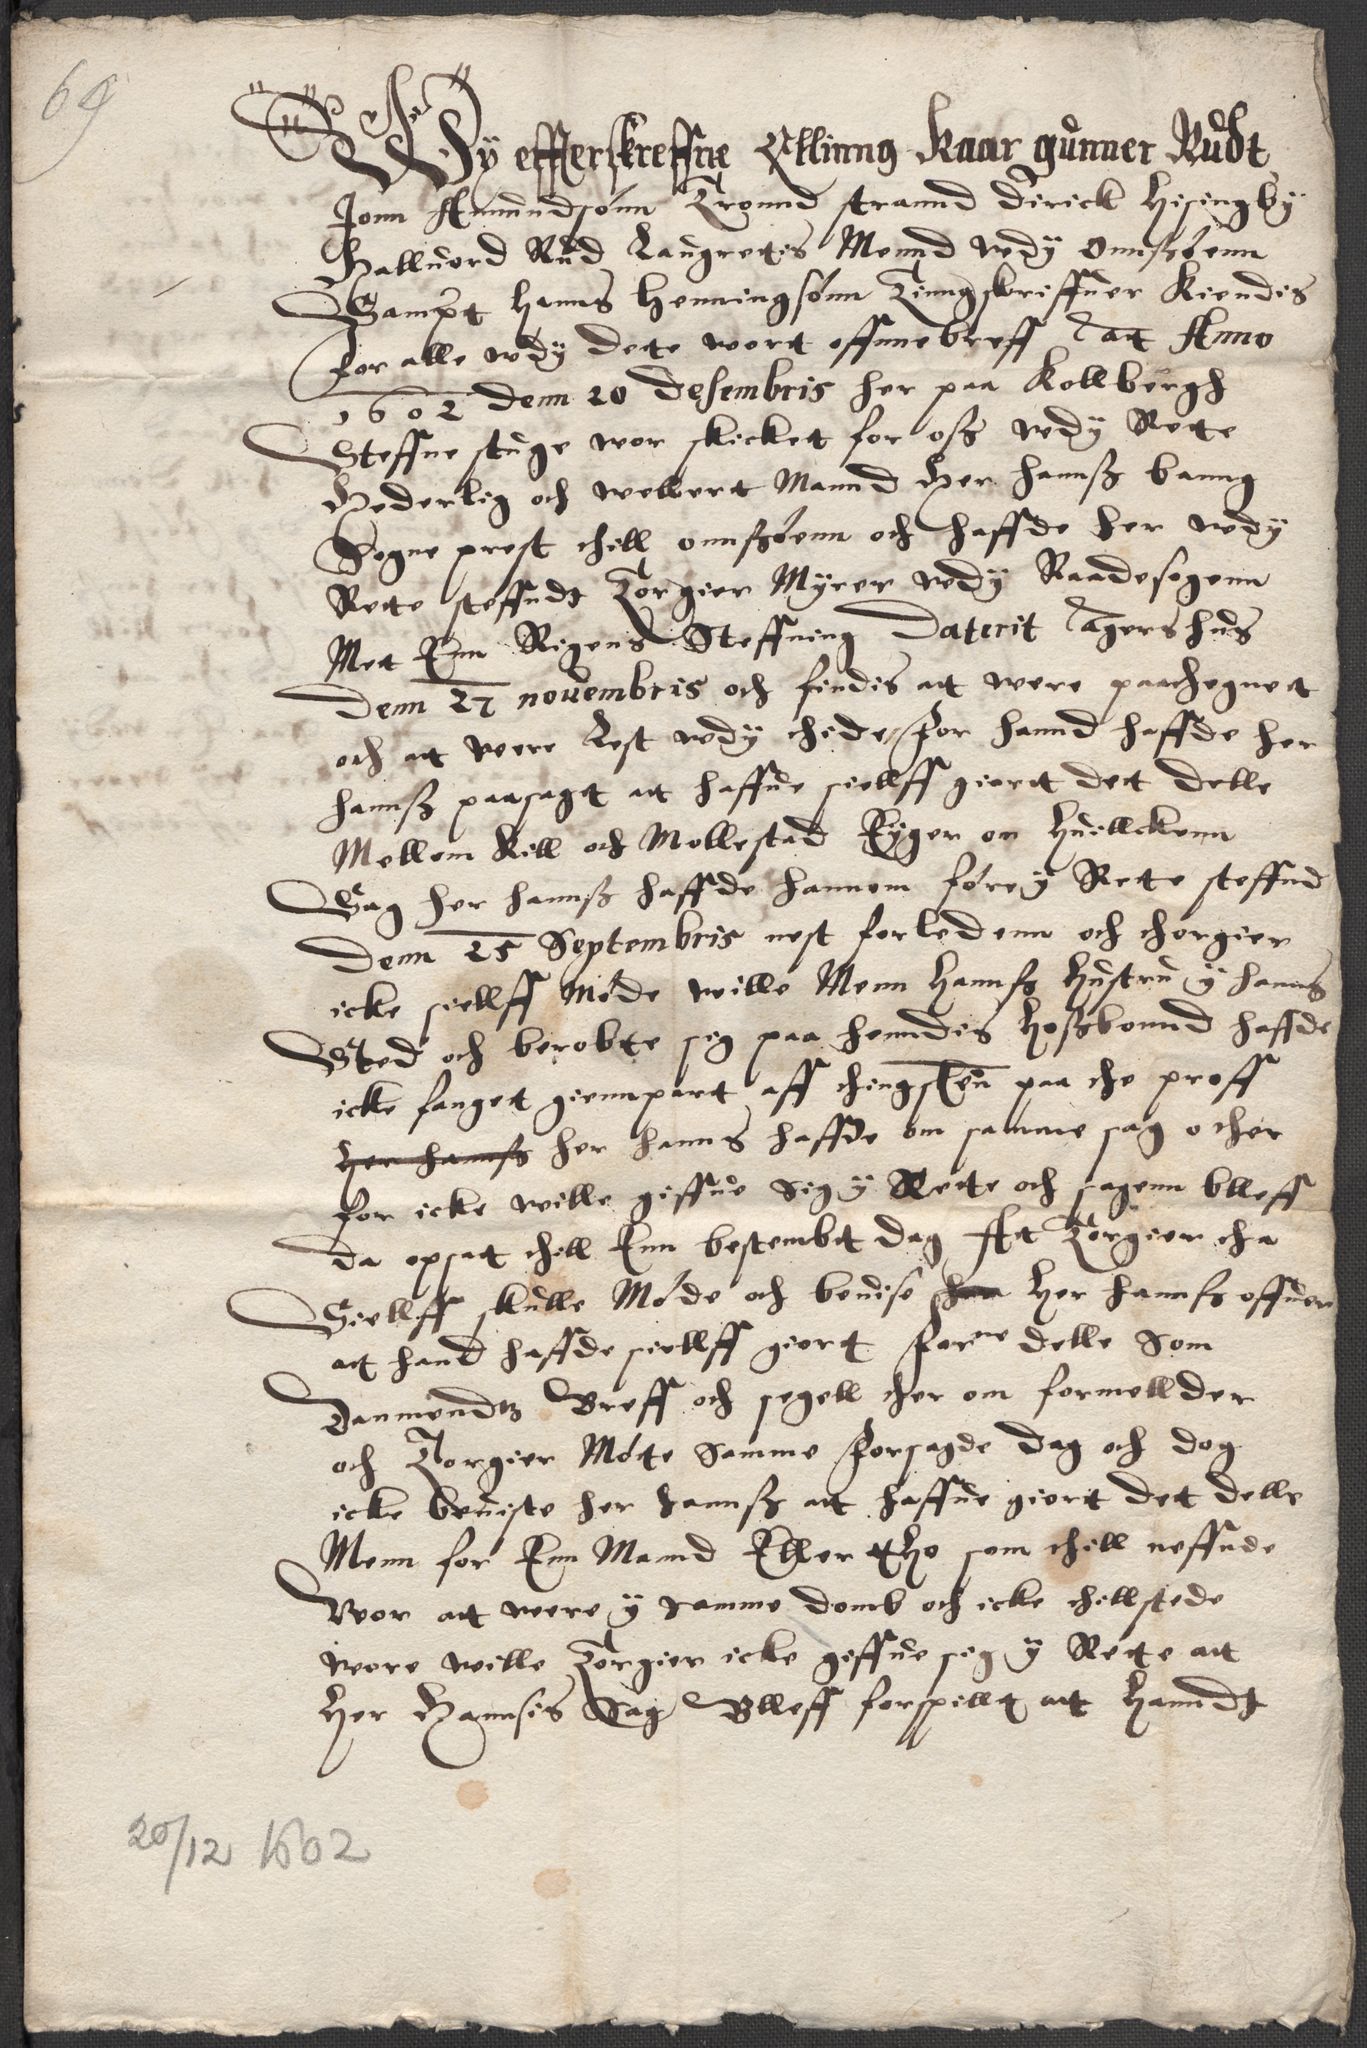 69
Wÿ effterskreffne Ellinng Kaar gunner Rudt
Jonn Amundsónn Tronnd strannd Dirick Hisingbÿ
Halluord Rud Laugretis Mennd wdÿ Onnsßóenn
Sampt Hanns Henningsónn Tinngskriffuer Kiendis
for alle wdÿ dete wort offnnebreff Att Anno
1602 denn 20 Desembris her paa Kollbergh
Steffne stuge wor skicket for oss wdÿ Rete
Hederlig och wellert Mannd Her Hannß banng
Sogne prest thill onnsßóenn och haffde her wdÿ
Rete steffndt Torgier Mÿrer wdÿ Raadesogenn
Met Enn Rigens Steffning Daterit Agershus
Denn 27 nouembris och findis att were paathegnet
och att were Lest wdÿ thide for hannd haffde her
hannß paasagt att haffue siellff giort det delle
Mellem Kill och Mollestad Eÿger on Huillckenn
Sag her hannß haffde hannem fóre ÿ Rete steffnd
Denn 25 Septembris nest forledenn och thorgier
icke siellff Móde wille Menn Hannss Hustru ÿ hanns
Sted och berobte sig paa henndis Hossbonnd haffde
icke fanget giennpart aff thingsuen paa the proff
her hannss her hanns haffde om samme sag other
for icke wille giffue sig ÿ Rette och sagenn bleff
da opsat thill Enn bestembt dag At Torgier tha
Siellff skulle Móde och beuise han Her Hannss offuer
att hand haffde siellff giort forne delle Som
Danmendtz Breff och segell ther om formellder
och Torgier Móte samme forsagde dag och dog
icke beuiste her hannß att haffue giort det delle
Menn for Enn Mannd Eller tho som thill neffnde
Wor att were ÿ samme domb och icke thillstede
wore wille Torgier icke giffue sig ÿ Rette att
Her Hannsis Sag Bleff forspillt att Hanndt
20/12 1602